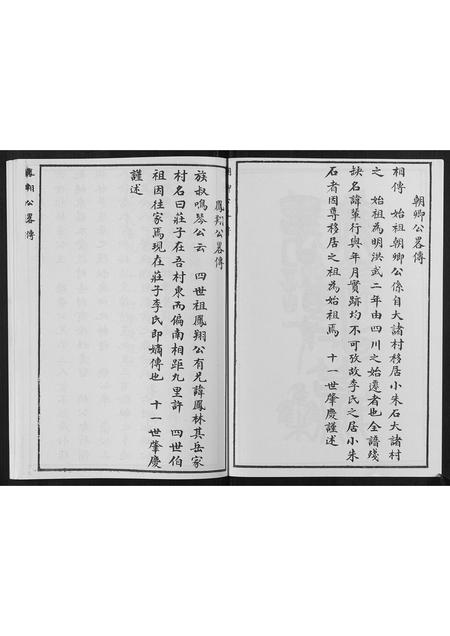 朝卿公畧傳
相傳　始祖朝卿公係自大諸村移居小朱石大諸村
之　始祖為明洪武二年由四川之始遷者也全譜殘
缺名諱輩行與年月實跡均不可攷故李氏之居小朱
石者因尊移居之祖為始祖焉　十一世肇慶謹述
鳳翔公畧傳
族叔鳴琴公云　四世祖鳳翔公有兄諱鳳林其岳家
村名曰莊子在吾村東而偏南相距九里許　四世伯
祖因往家焉現在莊子李氏即嫡傳也　十一世肇慶
謹述
鳳翔公畧傳